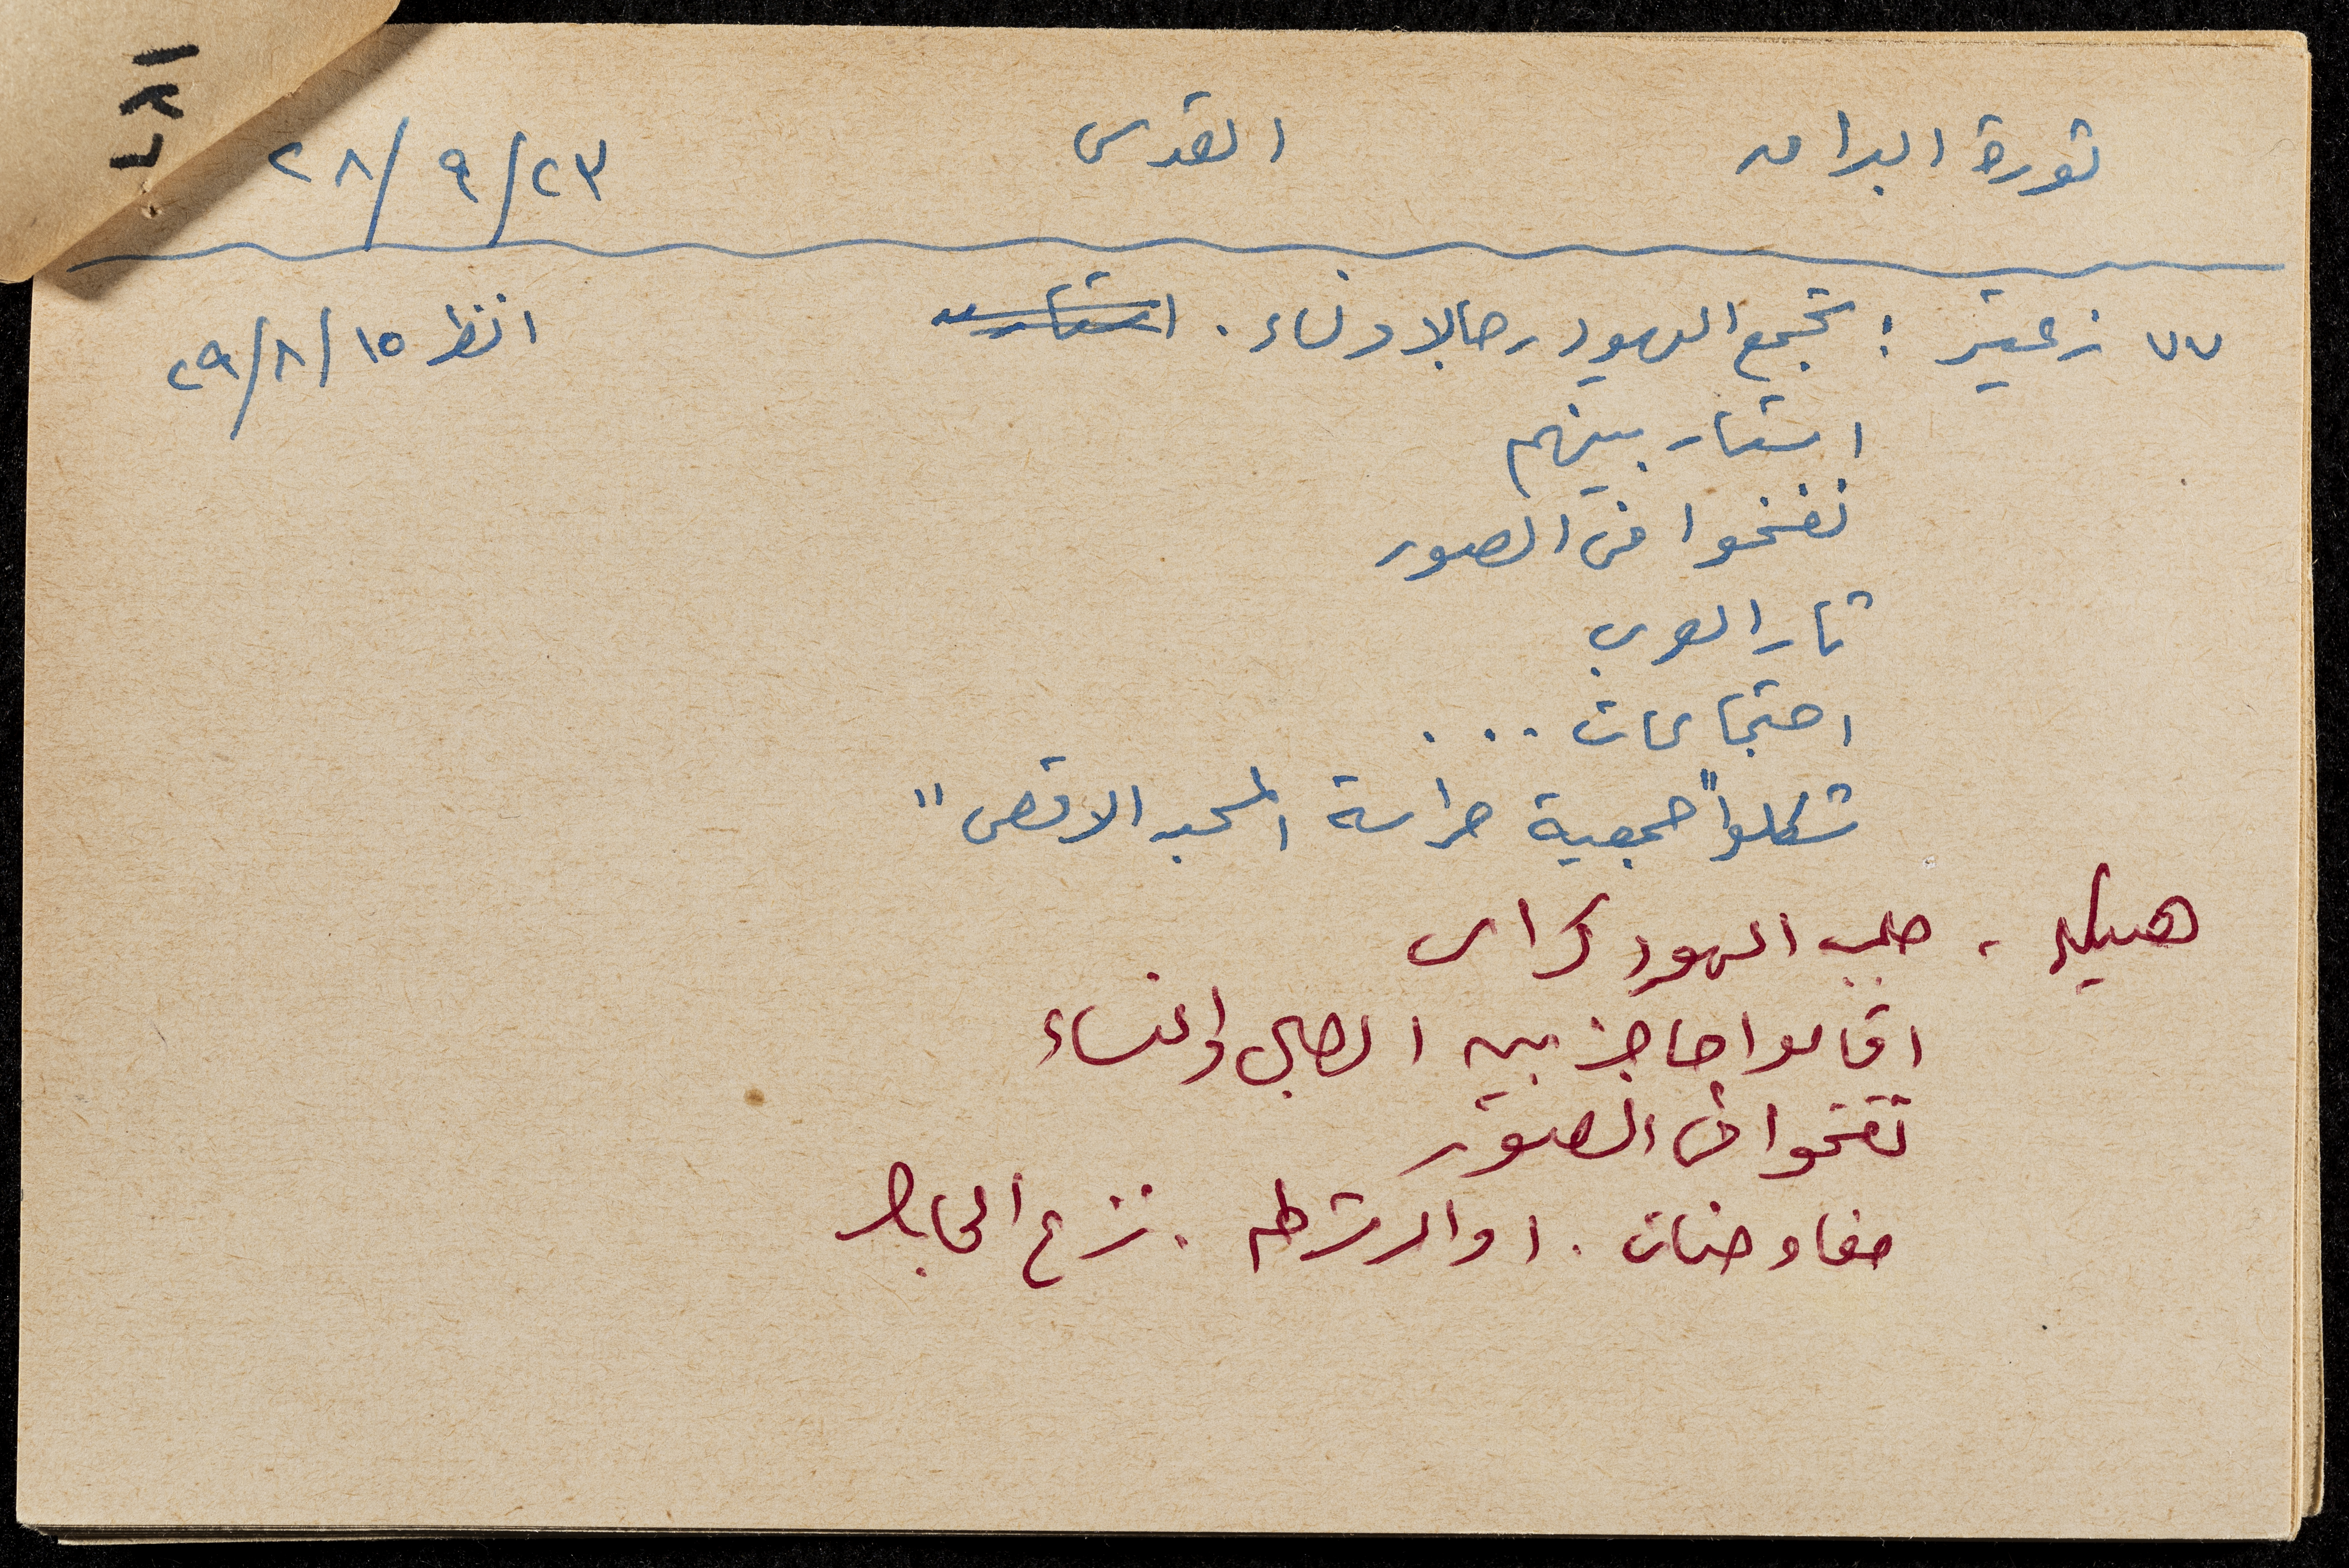 ثورة البراق القدس ٢٣/٩/٢٨
٧٧ زعيتر : تجمع اليهود رجالا ونساء . انظر ١٥/٨/٢٩
استار بينهم
نفخوا في الصور
ثار العرب
احتجاجات . . .
شكلوا "جمعية حراسة المسجد الاقصى"
هيكل ، جلب اليهود كراسي
اقاموا حاجز بين الرجال والنساء
نفخوا في الصور
مفاوضات . اوامر شرطه . نزع الحاجز